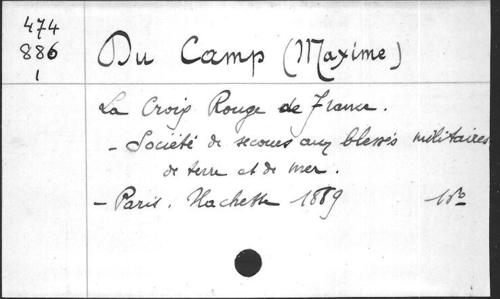 474
886
1
Du Camp (Maxime)
La Croix Rouge de France.
- Société de secours aux blessés militaires
de terre et de mer.
- Paris. Hachette 1889